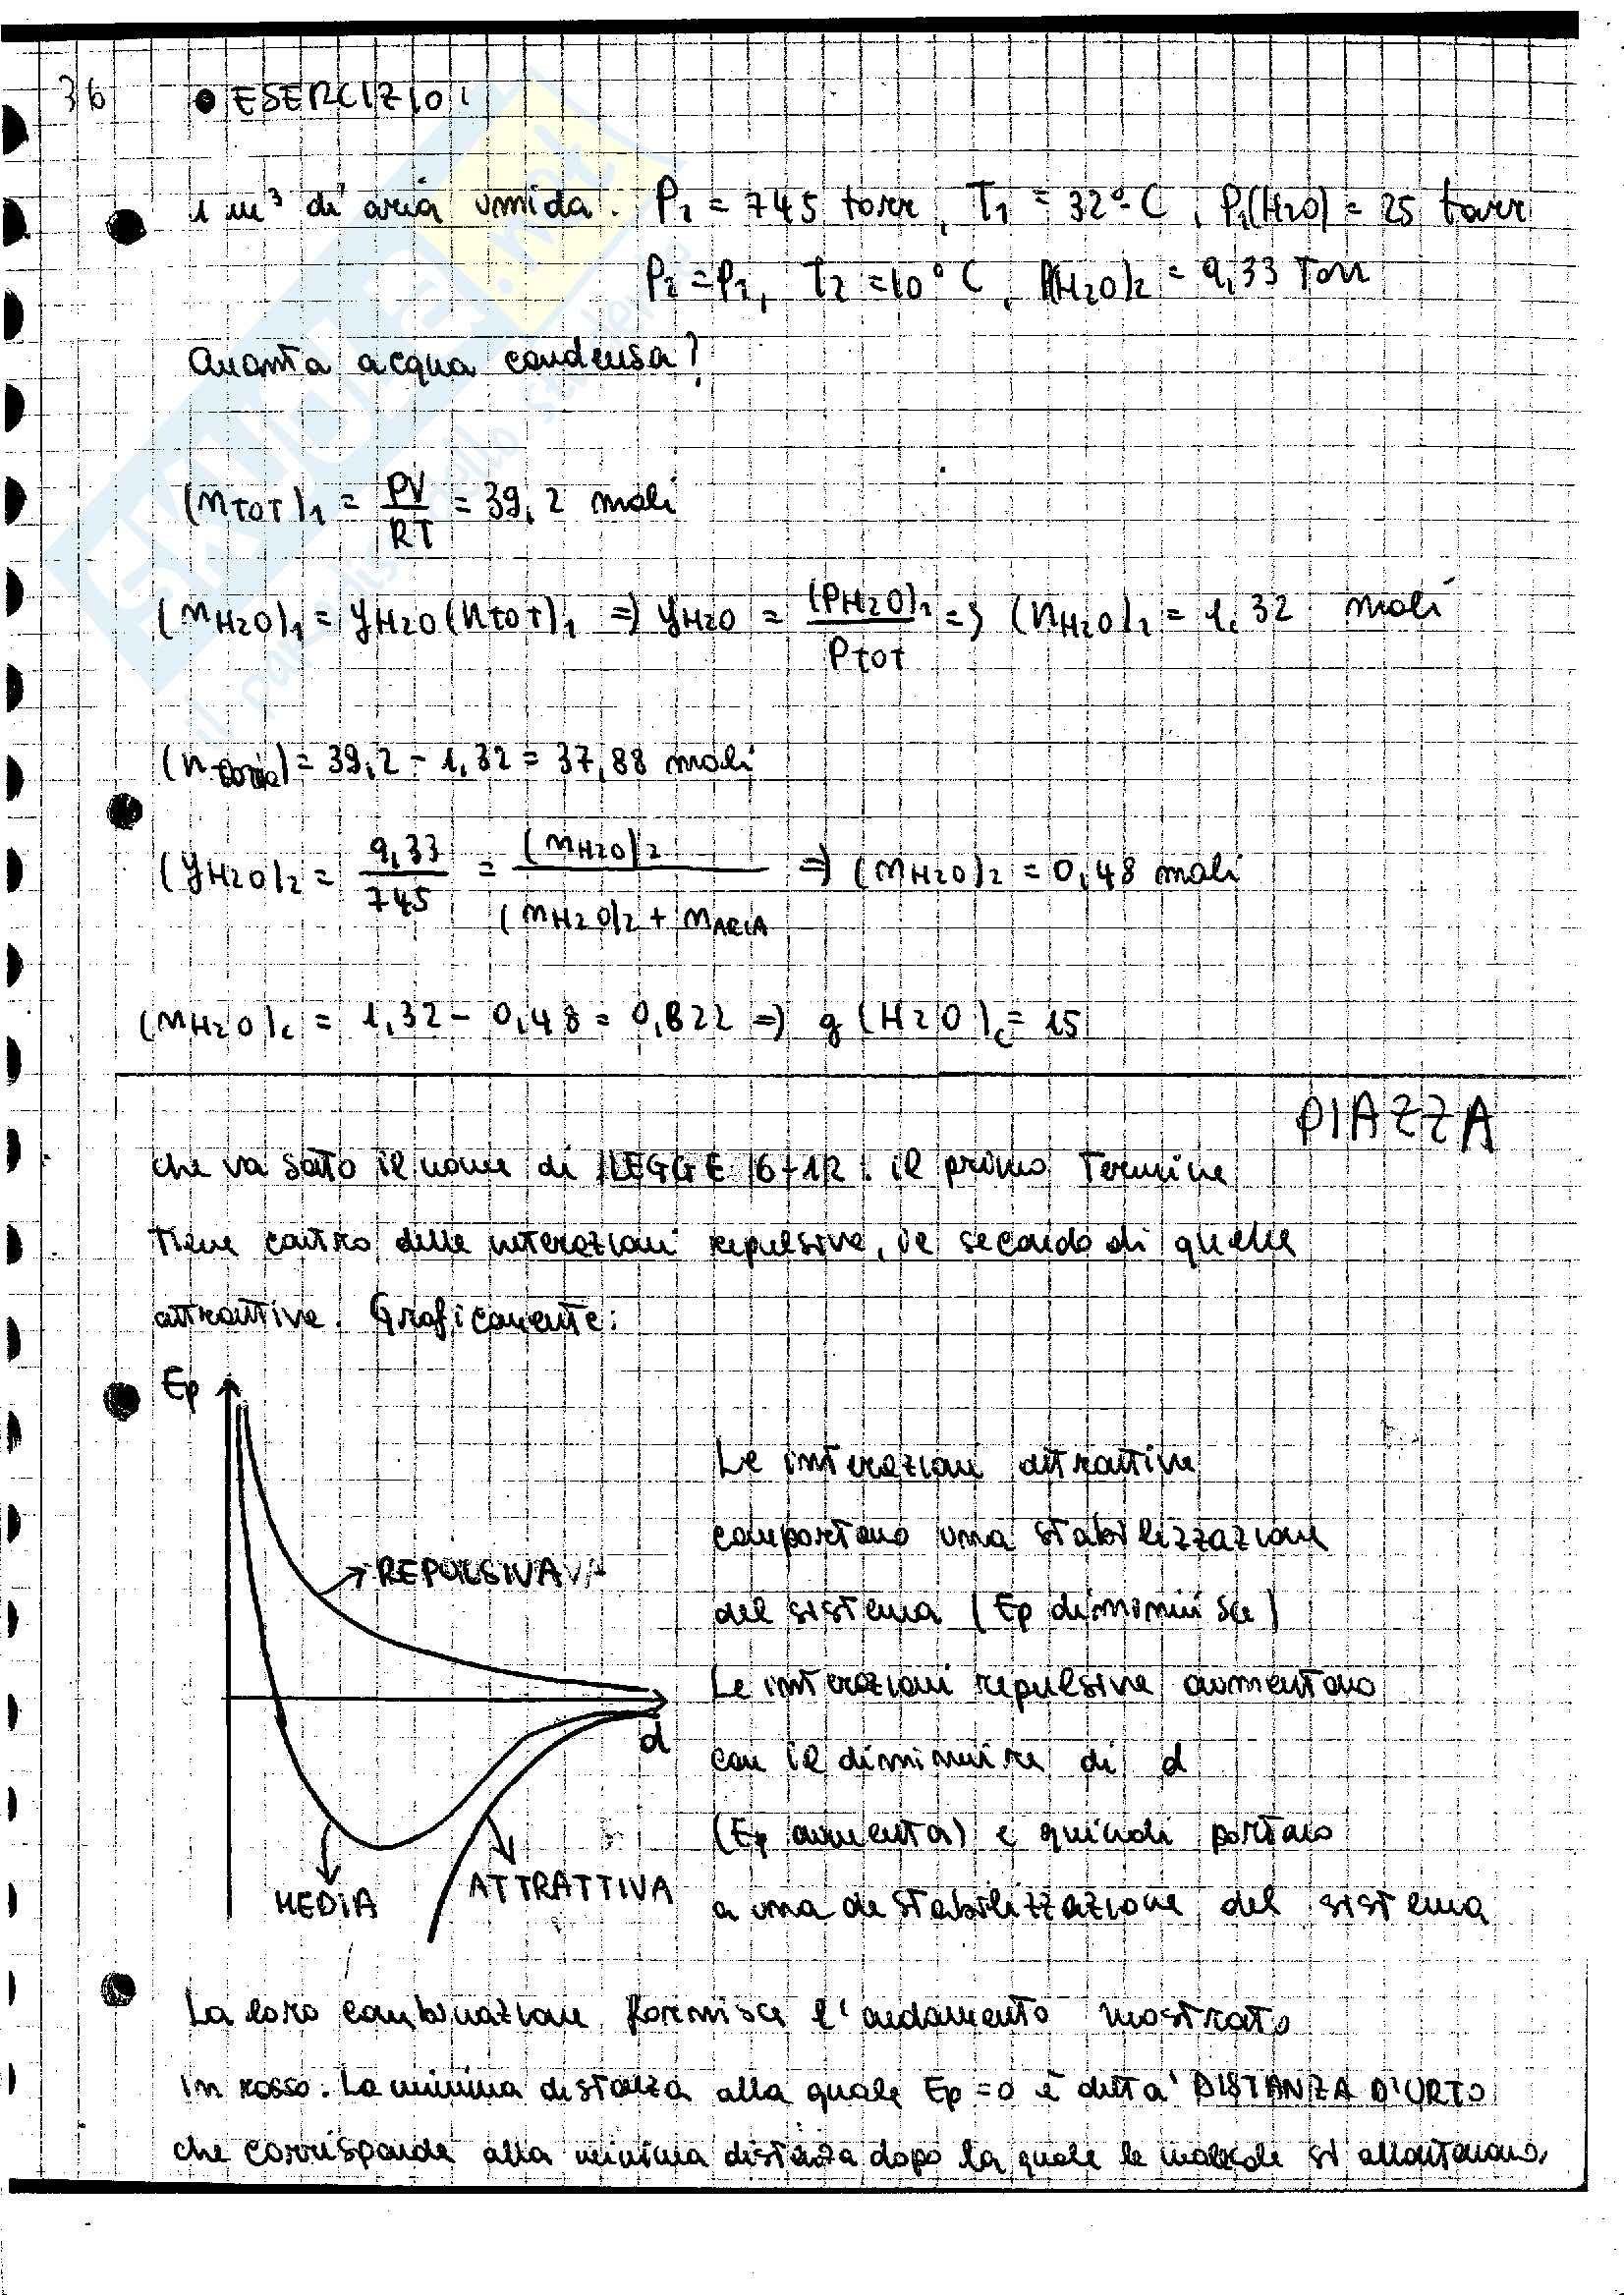 36 • ESERCIZIO:
1 m³ di aria umida. P1 = 745 torr, T1 = 32°C, P1(H2O) = 25 torr
P2 = P1, T2 = 10°C, P(H2O)2 = 9,33 Torr
Quanta acqua condensa?
(nTOT)1 = PV/RT = 39,2 moli
(nH2O)1 = yH2O (nTOT)1 => yH2O = (PH2O)1/PTOT => (nH2O)1 = 1,32 moli
(n aria) = 39,2 - 1,32 = 37,88 moli
(yH2O)2 = 9,33/745 = (nH2O)2/(nH2O)2 + nARIA => (nH2O)2 = 0,48 moli
(nH2O)c = 1,32 - 0,48 = 0,822 => g (H2O)c = 15
PIAZZA
che va sotto il nome di LEGGE 6-12: il primo termine
tiene contro delle interazioni repulsive, il secondo di quelle
attrattive. Graficamente:
Ep
REPULSIVA
d
MEDIA
ATTRATTIVA
Le interazioni attrattive
comportano una stabilizzazione
del sistema (Ep diminuisce)
Le interazioni repulsive aumentano
con il diminuire di d
(Ep aumenta) e quindi portano
a una destabilizzazione del sistema
La loro combinazione fornisce l'andamento mostrato
in rosso. La minima distanza alla quale Ep = 0 è detta DISTANZA D'URTO
che corrisponde alla minima distanza dopo la quale le molecole si allontanano,